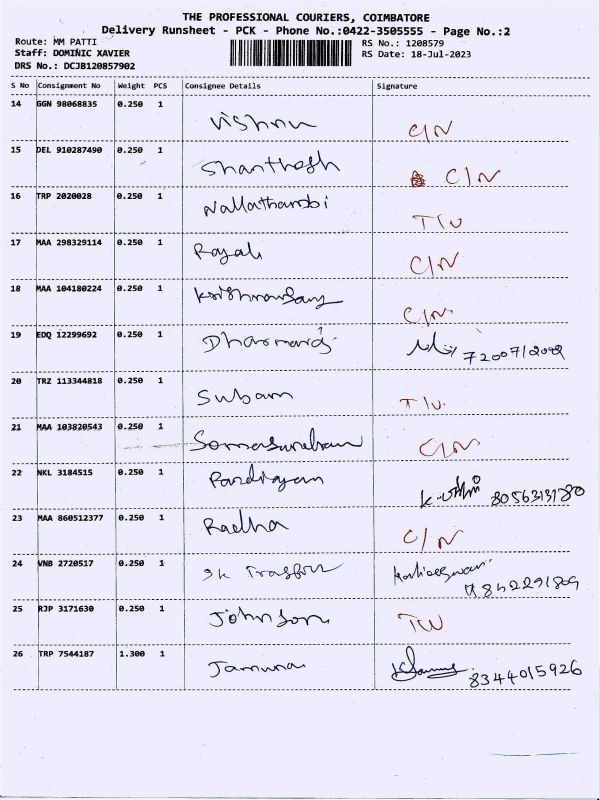 THE PROFESSIONAL COURIERS, COIMBATORE
Delivery Runsheet - PCK - Phone No.:0422-3505555 - Page No.:2
Route: MM PATTI RS No.: 1208579
Staff: DOMINIC XAVIER RS Date: 18-Jul-2023
DRS No.: DCJB120857902
S No Consignment No Weight PCS Consignee Details Signature
14 GGN 98068835 0.250 1 Vishnu C/N
15 DEL 910287490 0.250 1 Shanthosh C/N
16 TRP 2020028 0.250 1 Nallathambi T/W
17 MAA 298329114 0.250 1 Rajali C/N
18 MAA 104180224 0.250 1 C/N
19 EDQ 12299692 0.250 1 Dharmaraj
20 TRZ 113344818 0.250 1 Subam T/W
21 MAA 103820543 0.250 1 C/N
22 NKL 3184515 0.250 1 Pandiyan 8056313180
23 MAA 860512377 0.250 1 Radha C/N
24 VNB 2720517 0.250 1 SK
25 RJP 3171630 0.250 1 Johnson T/W
26 TRP 7544187 1.300 1 Jamuna 8344015926